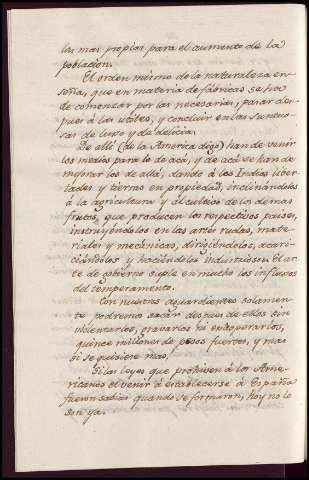 las mas propias para el aumento de la
poblacion.
El orden mismo de la naturaleza en-
seña, que en materia de fábricas se ha
de comenzar por las necesarias, pasar des-
pues á las utiles, y concluir en las suntuo-
sas de luxo y de delicia.
De allá (de la America digo) han de venir
los medios para lo de acá, y de acá se han de
mejorar los de allá, dando á los Indios liber-
tades y tierras en propiedad, inclinándolos
á la agricultura y al cultivo de los demas
frutos, que producen los respectivos paises,
instruyéndolos en las artes rudas, mate-
riales y mecánicas, dirigiéndolos, acari-
ciándolos y haciéndolos industriosos. El ar-
te de gobierno suple en mucho los influxos
del temperamento.
Con nuestros aguardientes solamen-
te podremos sacar despues de ellos sin
violentarlos, gravarlos ni exasperarlos,
quince millones de pesos fuertes, y mas
si se quisiere mas.
Si las leyes que prohiven á los Ame-
ricanos el venir á establecerse á España
fueron sabias quando se formaron, hoy no lo
son ya.